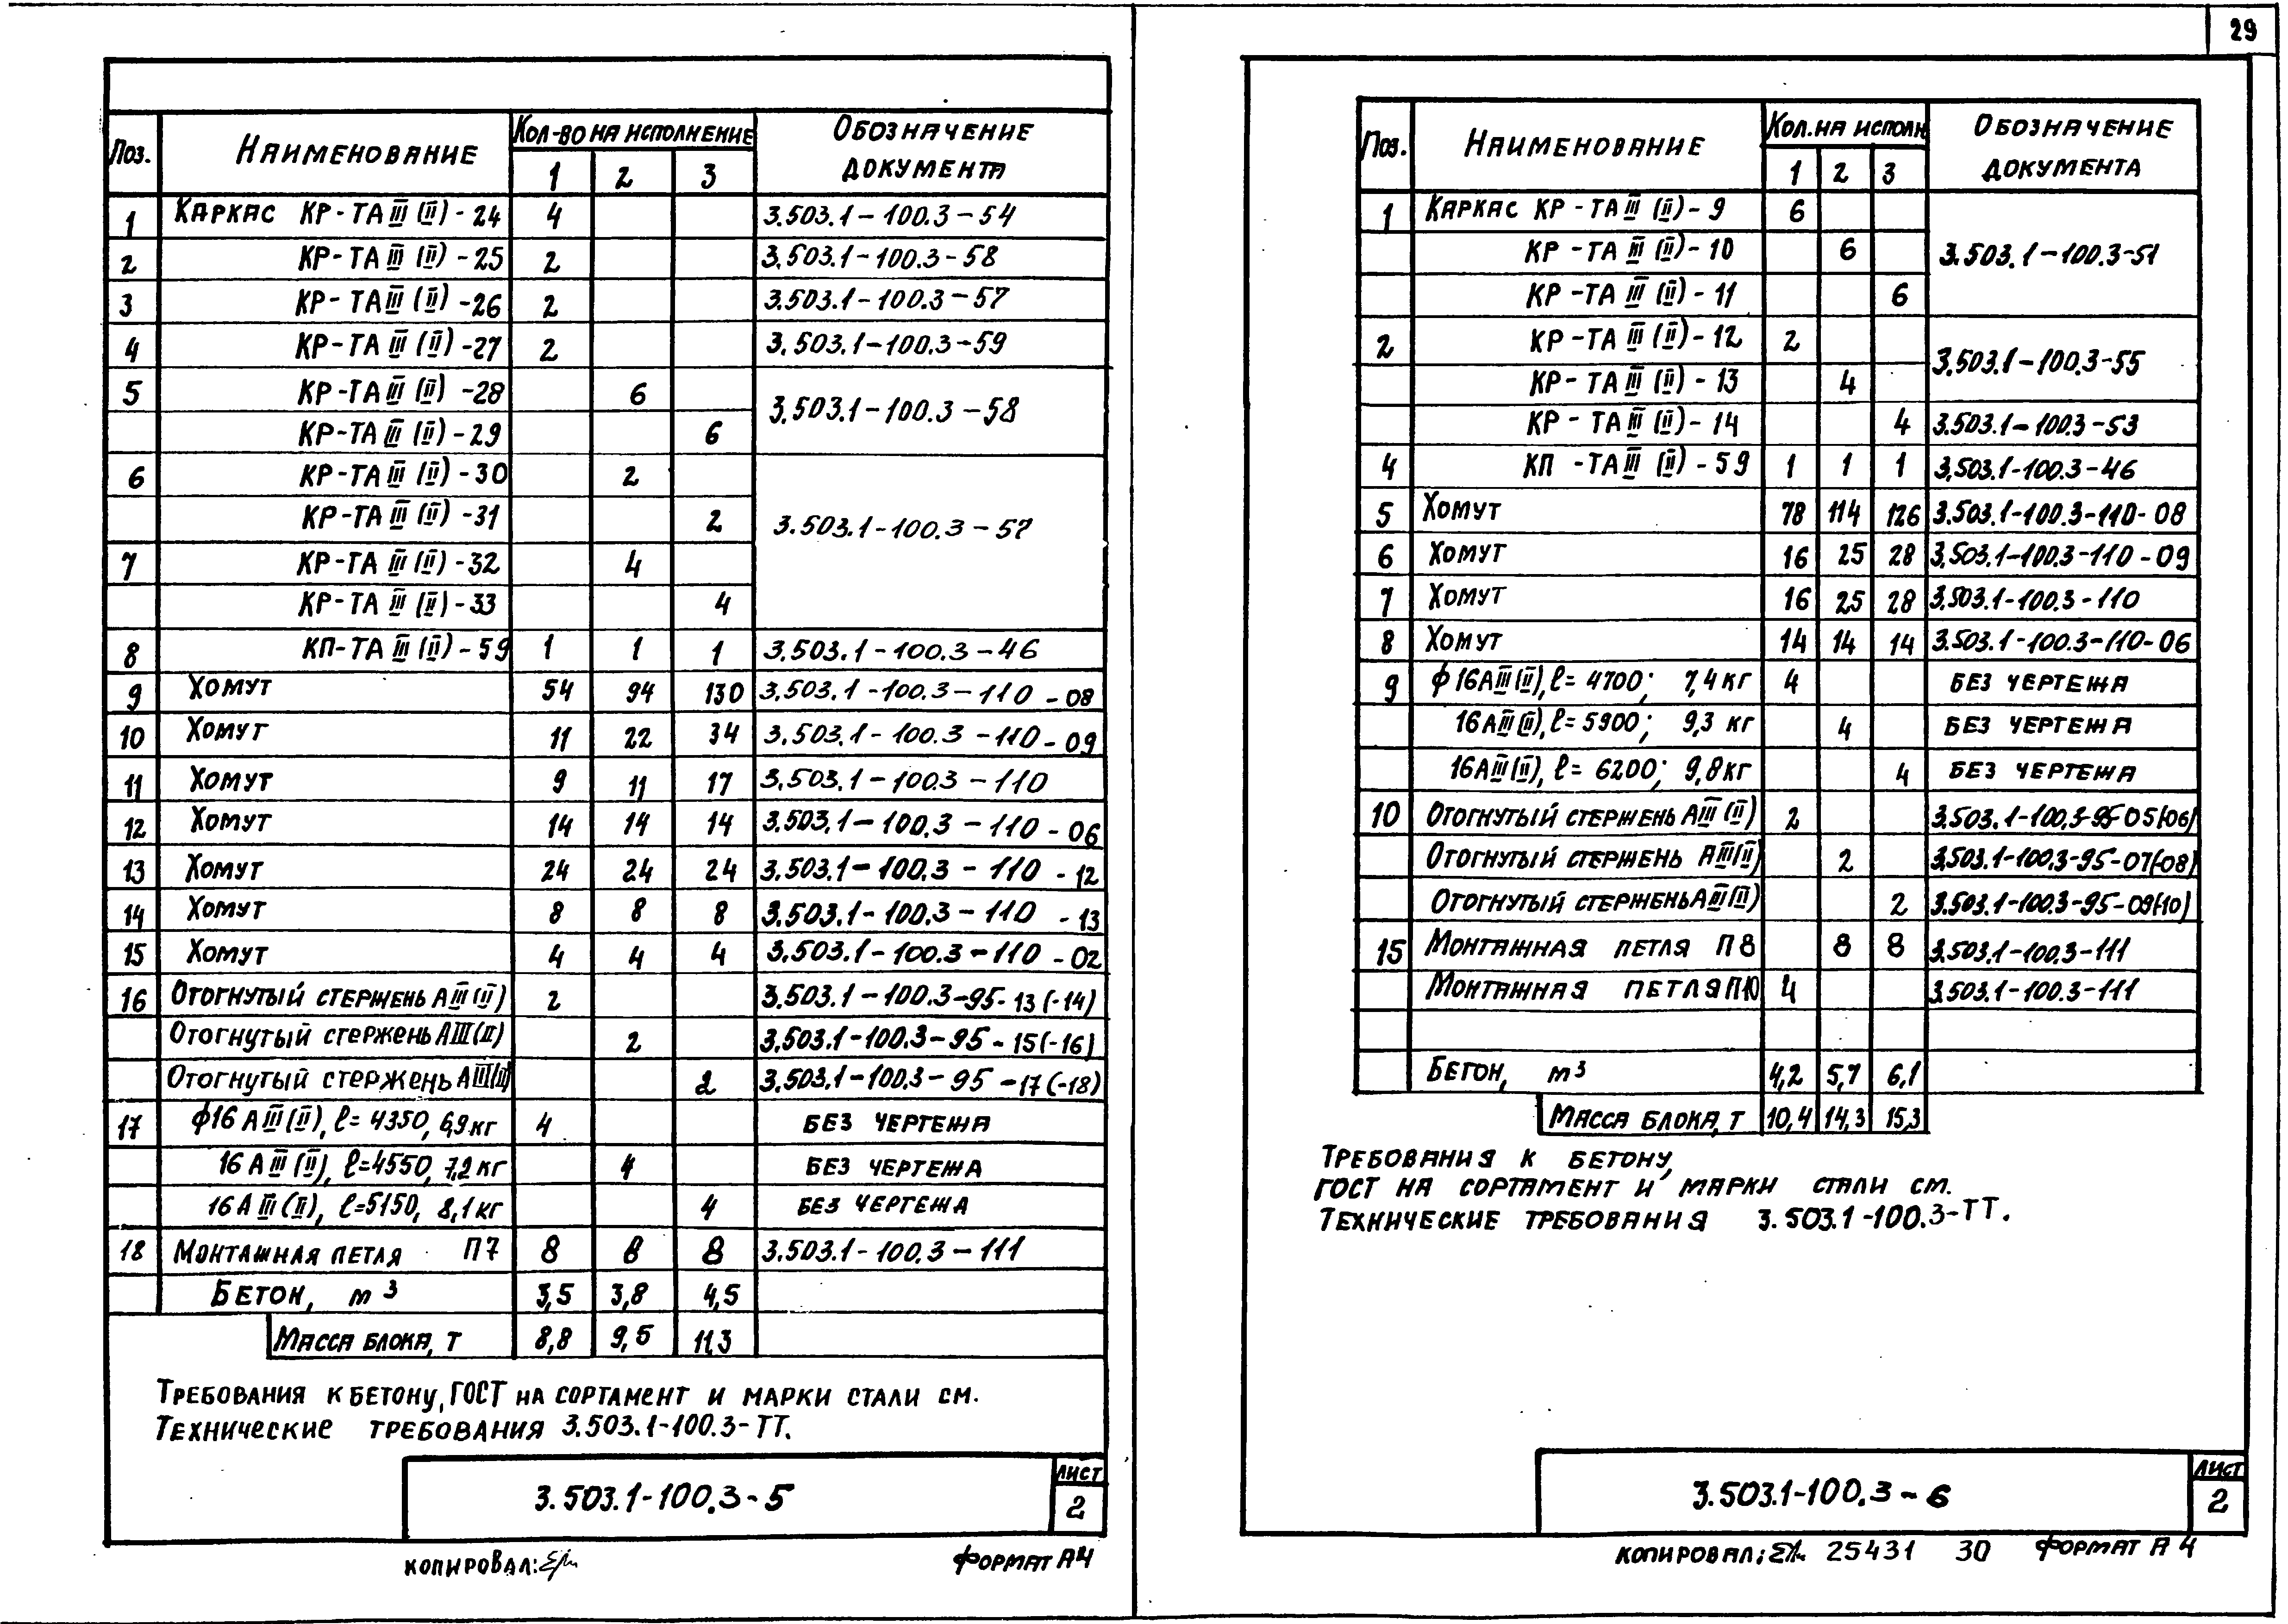 29
Поз. Наименование Кол-во на исполнение Обозначение документа
1 2 3
1 Каркас КР-ТАIII(II)-24 4 3.503.1-100.3-54
2 КР-ТАIII(II)-25 2 3.503.1-100.3-58
3 КР-ТАIII(II)-26 2 3.503.1-100.3-57
4 КР-ТАIII(II)-27 2 3.503.1-100.3-59
5 КР-ТАIII(II)-28 6 3.503.1-100.3-58
КР-ТАIII(II)-29 6
6 КР-ТАIII(II)-30 2
КР-ТАIII(II)-31 2 3.503.1-100.3-57
7 КР-ТАIII(II)-32 4
КР-ТАIII(II)-33 4
8 КП-ТАIII(II)-59 1 1 1 3.503.1-100.3-46
9 Хомут 54 94 130 3.503.1-100.3-110-08
10 Хомут 11 22 34 3.503.1-100.3-110-09
11 Хомут 9 11 17 3.503.1-100.3-110
12 Хомут 14 14 14 3.503.1-100.3-110-06
13 Хомут 24 24 24 3.503.1-100.3-110-12
14 Хомут 8 8 8 3.503.1-100.3-110-13
15 Хомут 4 4 4 3.503.1-100.3-110-02
16 Отогнутый стержень АIII(II) 2 3.503.1-100.3-95-13(-14)
Отогнутый стержень АIII(II) 2 3.503.1-100.3-95-15(-16)
Отогнутый стержень АIII(II) 2 3.503.1-100.3-95-17(-18)
17 ф16АIII(II), ℓ=4350, 6,9кг 4 без чертежа
16АIII(II), ℓ=4550, 7,2кг 4 без чертежа
16АIII(II), ℓ=5150, 8,1кг 4 без чертежа
18 Монтажная петля П7 8 8 8 3.503.1-100.3-111
Бетон, м3 3,5 3,8 4,5
Масса блока, т 8,8 9,5 11,3
Требования к бетону, ГОСТ на сортамент и марки стали см.
Технические требования 3.503.1-100.3-ТТ.
3.503.1-100.3-5 Лист 2
Копировал: Формат А4
Поз. Наименование Кол. на исполн Обозначение документа
1 2 3
1 Каркас КР-ТАIII(II)-9 6
КР-ТАIII(II)-10 6 3.503.1-100.3-51
КР-ТАIII(II)-11 6
2 КР-ТАIII(II)-12 2 3.503.1-100.3-55
КР-ТАIII(II)-13 4
КР-ТАIII(II)-14 4 3.503.1-100.3-53
4 КП-ТАIII(II)-59 1 1 1 3.503.1-100.3-46
5 Хомут 78 114 126 3.503.1-100.3-110-08
6 Хомут 16 25 28 3.503.1-100.3-110-09
7 Хомут 16 25 28 3.503.1-100.3-110
8 Хомут 14 14 14 3.503.1-100.3-110-06
9 ф16АIII(II), ℓ=4700; 7,4кг 4 без чертежа
16АIII(II), ℓ=5900; 9,3 кг 4 без чертежа
16АIII(II), ℓ=6200; 9,8кг 4 без чертежа
10 Отогнутый стержень АIII(II) 2 3.503.1-100.3-95-05(-06)
Отогнутый стержень АIII(II) 2 3.503.1-100.3-95-07(-08)
Отогнутый стержень АIII(II) 2 3.503.1-100.3-95-09(-10)
15 Монтажная петля П8 8 8 3.503.1-100.3-111
Монтажная петля П10 4 3.503.1-100.3-111
Бетон, м3 4,2 5,7 6,1
Масса блока, т 10,4 14,3 15,3
Требования к бетону,
ГОСТ на сортамент и марки стали см.
Технические требования 3.503.1-100.3-ТТ.
3.503.1-100.3-6 Лист 2
Копировал: 25431 30 Формат А4